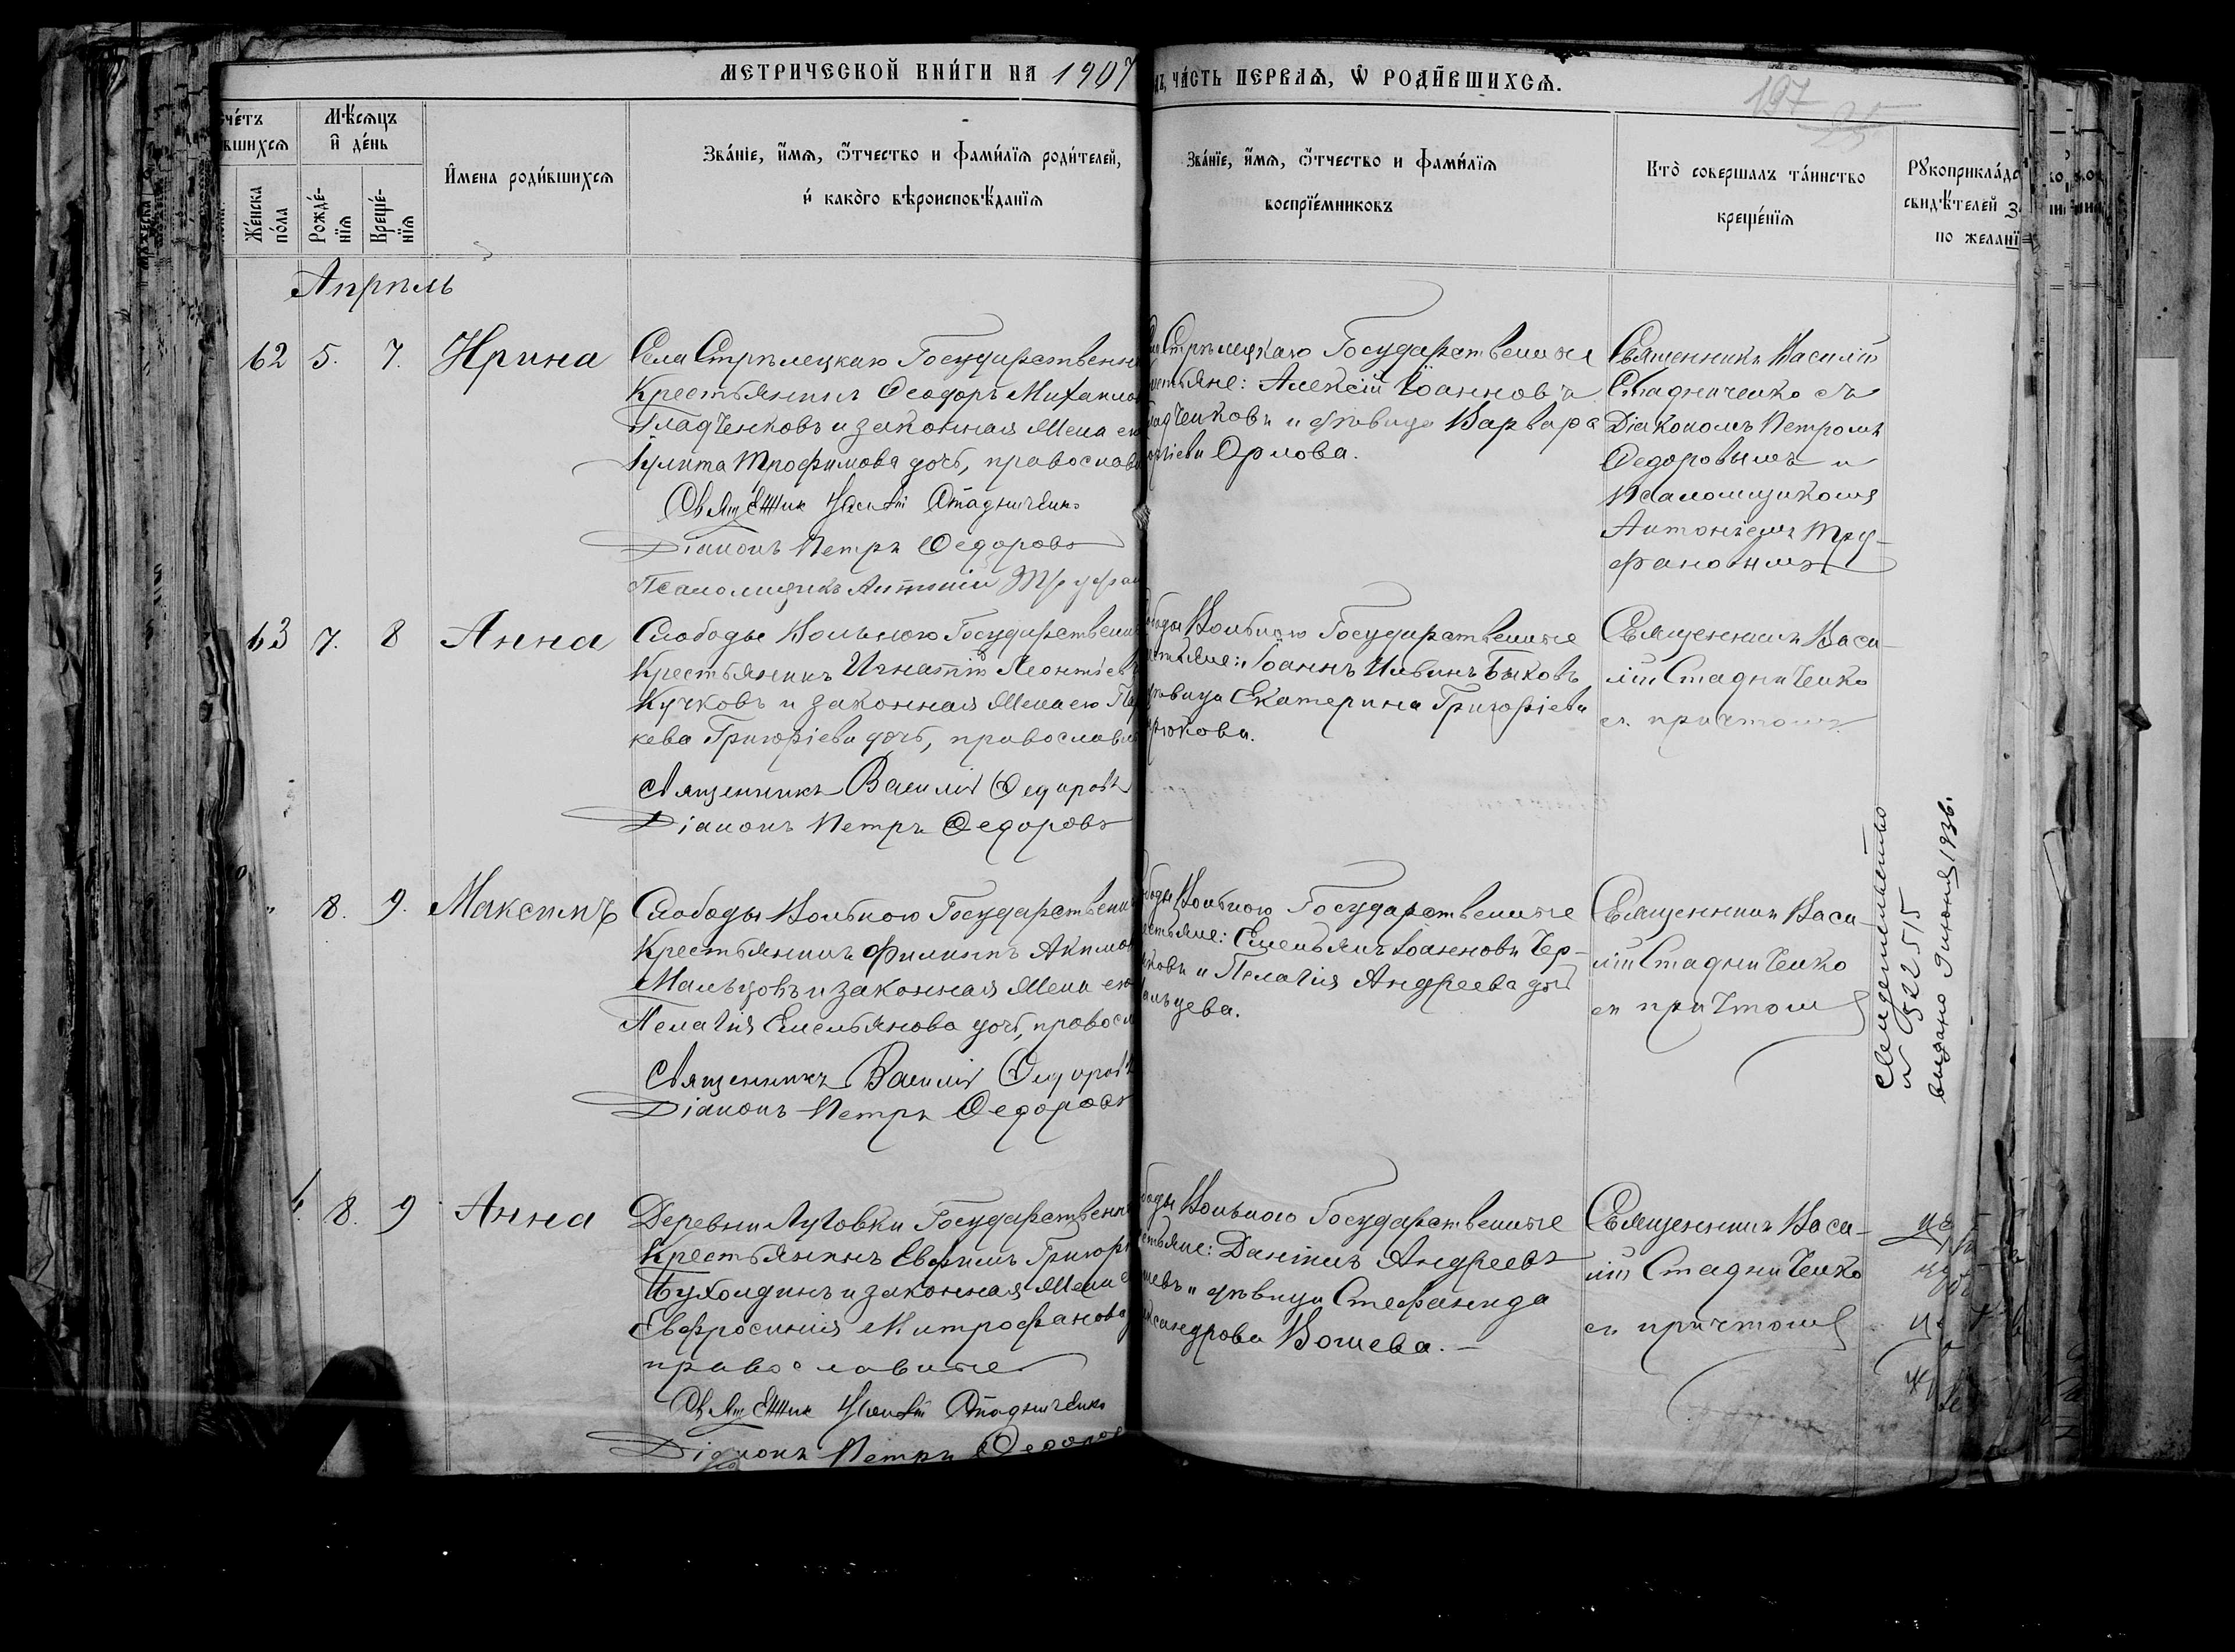 МЕТРИЧЕСКОЙ КНИ́ГИ НА 1907
ЧА́СТЬ ПЕРВАѦ, Ѡ РОДИ́ВШИХСѦ.
197
Мѣ́сѧцъ
и҆ де́нь
Же́нска
по́ла
Рожде́-
нїѧ
Креще́-
нїѧ
И҆мена роди́вшихсѧ
Зва́нїе, и҆́мѧ, ѻ҆́тчество и фами́лїѧ роди́телей,
и҆ како́го вѣроисповѣ́данїѧ
Зва́нїе, и҆́мѧ, ѻ҆́тчество и фами́лїѧ
воспрїе́мниковъ
Кто̀ соверша́лъ та́инство
креще́нїѧ
Рꙋкоприкла́д
свидѣ́телей
по жела́нї
Апрѣль
62 5. 7. Ирина
Села Стрѣлецкаго Государственн
Крестьянинъ Ѳеодоръ Михаило
Гладченковъ и законная жена ег
Іулита Трофимова дочь, православ
Священник Василій Стадниченко
Діаконъ Петръ Ѳедоровъ
Псаломщикъ Антоній Труфан
Стрѣлецкаго Государственные
Алексій Іоанновъ
и дѣвица Варвара
Орлова.
Священникъ Василій
Стадниченко съ
Діакономъ Петромъ
Ѳедоровымъ и
Псаломщикомъ
Антоніемъ Тру-
фановымъ
63 7. 8 Анна
Слободы Вольного Государствен
Крестьянинъ Игнатій Леонтіев
Кучковъ и законная жена его Па
кева Григоріева дочь, православ
Священникъ Василій Ѳедоровъ
Діаконъ Петръ Ѳедоровъ
Вольного Государственные
Іоаннъ Ильинъ Быковъ
Екатерина Григоріева
Священникъ Васи-
лій Стадниченко
съ причтомъ
8. 9. Максимъ
Слободы Вольного Государствен
Крестьянинъ Филиппъ Акимо
Мальцовъ и законная жена его
Пелагія Емельянова дочь, правосл
Священникъ Василій Ѳедоровъ
Діаконъ Петръ Ѳедоровъ
Вольного Государственные
Емельянъ Іоанновъ Чер-
и Пелагія Андреева дочь
Священникъ Васи-
лій Стадниченко
съ причтомъ
свидетельство
№ 522515
выдано 9 июня 1936.
8. 9 Анна
Деревни Луговки Государственн
Крестьянинъ Евфимъ Григор
Бухолдинъ и законная жена е
Евфросинія Митрофанова
православные
Священник Василій Стадниченко
Діаконъ Петръ Ѳедоров
Вольного Государственные
Даніилъ Андреевъ
и дѣвица Стефанида
Вошева. —
Священникъ Васи-
лій Стадниченко
съ причтомъ